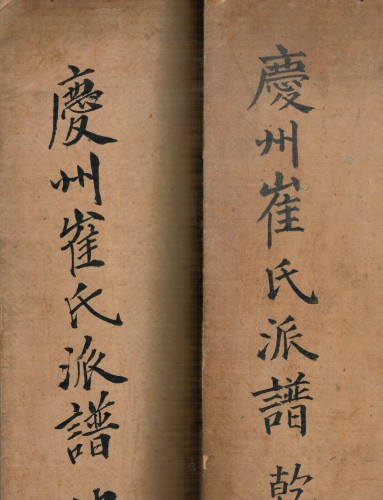 慶州崔氏派譜 乾
慶州崔氏派譜